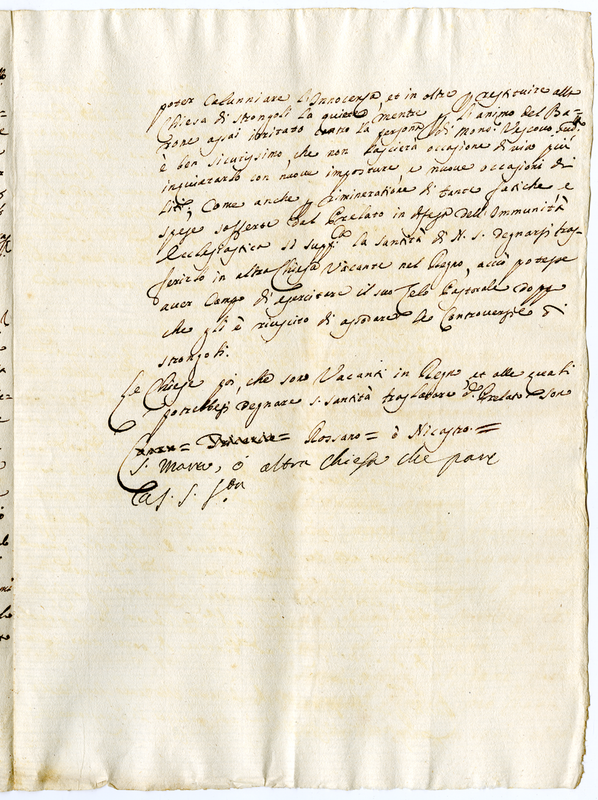 poter calunniare l'Innocenza, et in oltre restituire alla
Chiesa di Strongoli la quiete, mentre l'animo del Ba=
rone assai irritato contro la persona di Mons. Vescovo sud.
è ben sicurissimo, che non lascierà occasione di vivo più
inquietarlo con nuove imposture, e nuove occasioni di
liti; Come anche p rimuneratione di tante fatiche, e
spese sofferte dal Prelato in difesa dell'Immunità
Ecclesiastica si supp.ca la Santità di N. S. degnarsi tras=
ferirlo in altra Chiesa Vacante nel Regno, acciò potesse
aver Campo di esercitare il suo Zelo Pastorale doppo
che gli è riuscito di aggiustare le Controversie di
Strongoli.
Le Chiese poi, che sono Vacanti in Regno et alle quali
potrebbesi degnare S. Santità traslatare d.o Prelato sono
Rossano = ò Nicastro =
S. Marco, ò altra Chiesa che pare
a S. S.tà